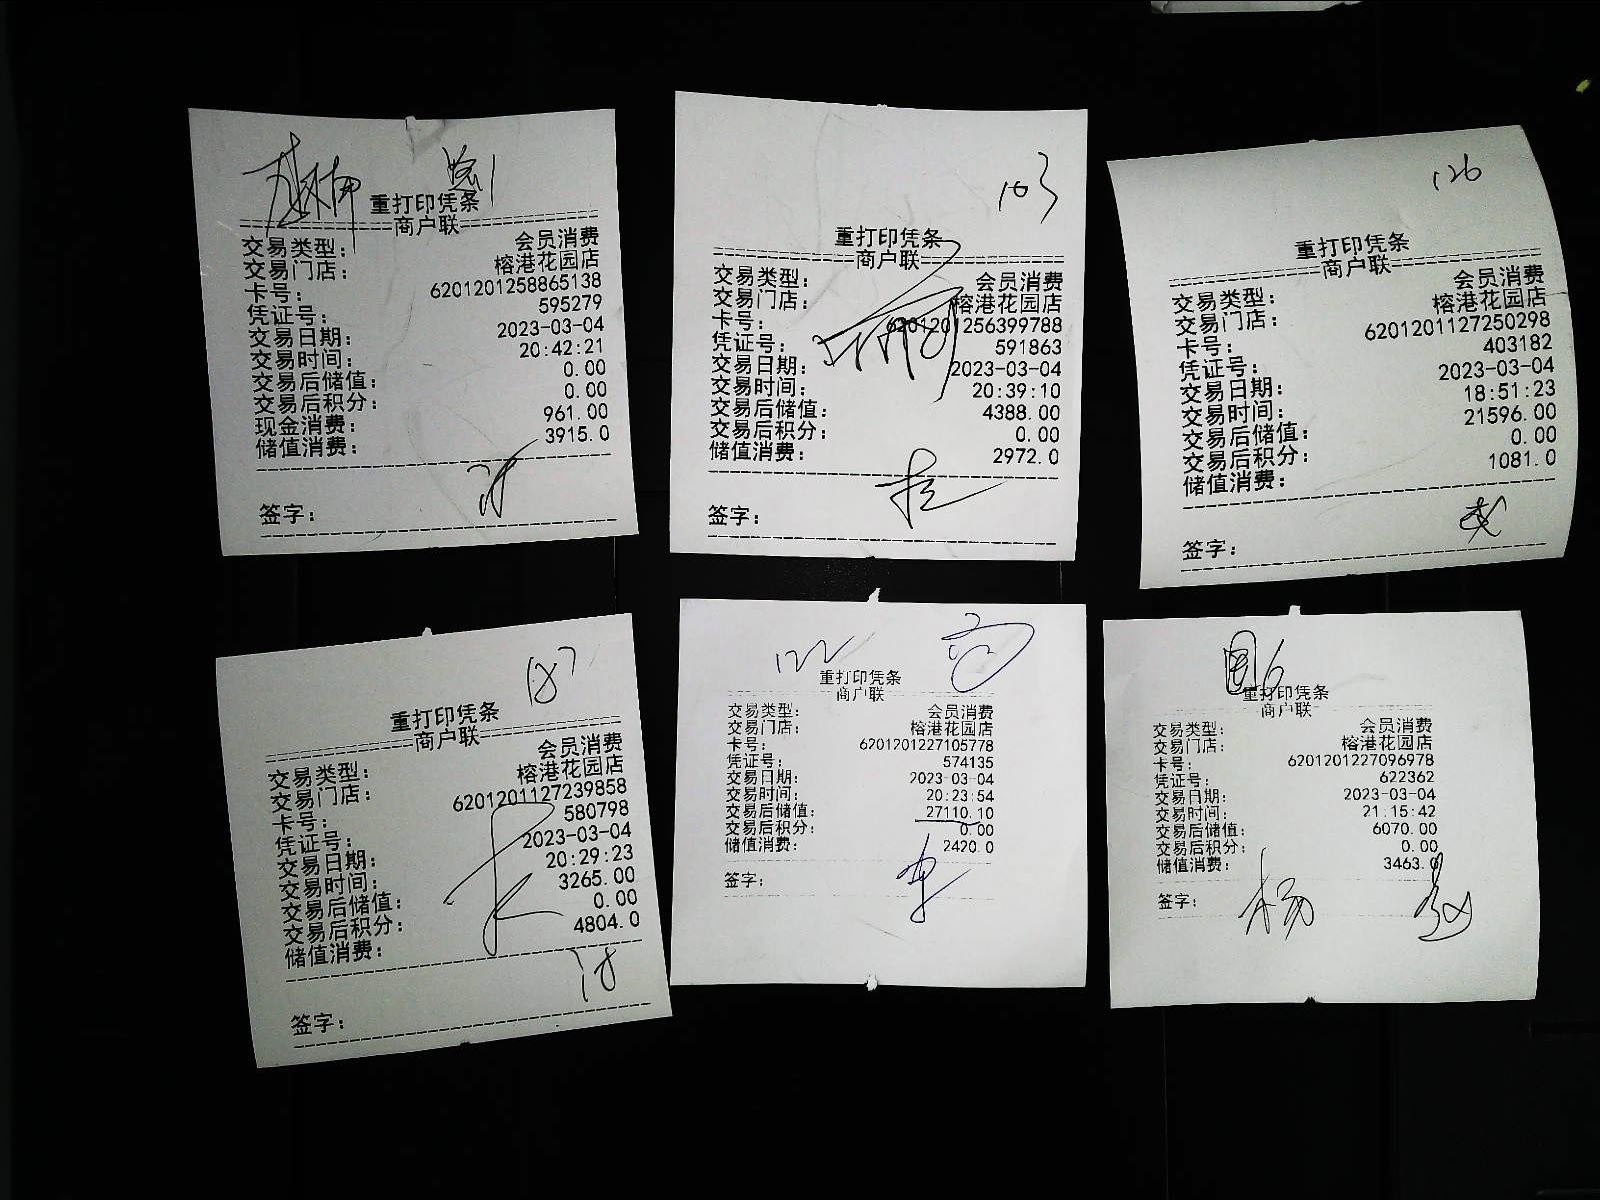 1
重打印凭条
商户联
交易类型： 会员消费
交易门店： 榕港花园店
卡号： 6201201258865138
凭证号： 595279
交易日期： 2023-03-04
交易时间： 20:42:21
交易后储值： 0.00
交易后积分： 0.00
现金消费： 961.00
储值消费： 3915.0
签字：
103
重打印凭条
商户联
交易类型： 会员消费
交易门店： 榕港花园店
卡号： 6201201256399788
凭证号： 591863
交易日期： 2023-03-04
交易时间： 20:39:10
交易后储值： 4388.00
交易后积分： 0.00
储值消费： 2972.0
签字：
126
重打印凭条
商户联
交易类型： 会员消费
交易门店： 榕港花园店
卡号： 6201201127250298
凭证号： 403182
交易日期： 2023-03-04
交易时间： 18:51:23
交易后储值： 21596.00
交易后积分： 0.00
储值消费： 1081.0
签字：
187
重打印凭条
商户联
交易类型： 会员消费
交易门店： 榕港花园店
卡号： 6201201127239858
凭证号： 580798
交易日期： 2023-03-04
交易时间： 20:29:23
交易后储值： 3265.00
交易后积分： 0.00
储值消费： 4804.0
签字：
122
重打印凭条
商户联
交易类型： 会员消费
交易门店： 榕港花园店
卡号： 6201201227105778
凭证号： 574135
交易日期： 2023-03-04
交易时间： 20:23:54
交易后储值： 27110.10
交易后积分： 0.00
储值消费： 2420.0
签字：
6
重打印凭条
商户联
交易类型： 会员消费
交易门店： 榕港花园店
卡号： 6201201227096978
凭证号： 622362
交易日期： 2023-03-04
交易时间： 21:15:42
交易后储值： 6070.00
交易后积分： 0.00
储值消费： 3463.0
签字： 杨